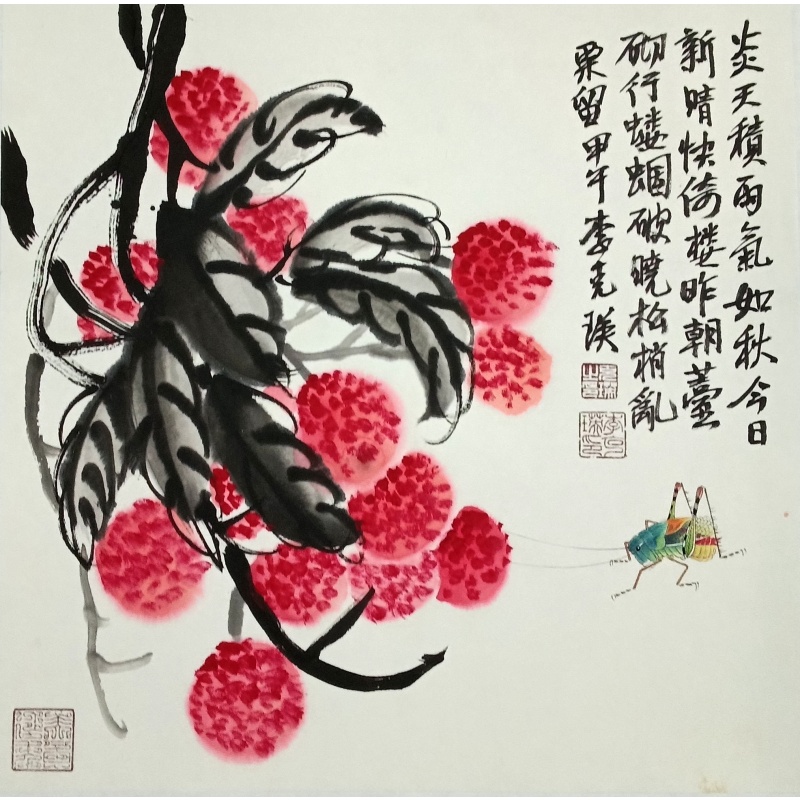 炎天積雨氣如秋今日
新晴快倚楼昨朝臺
砌行蝼蝈破曉松梢亂
栗留甲午李克瑛